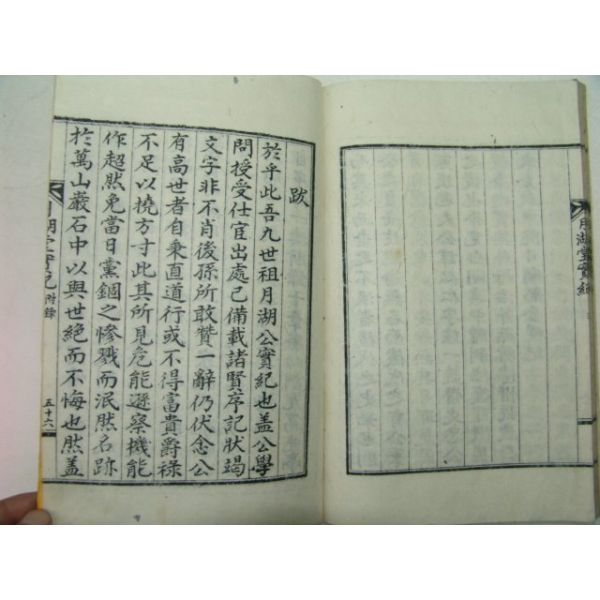 月湖堂實紀
跋
於乎此吾九世祖月湖公實紀也盖公學
問授受仕宦出處已備載諸賢序記狀碣
文字非不肖後孫所敢贊一辭仍伏念公
有高世者自秉直道行或不得富貴爵祿
不足以撓方寸此其所見危能避察機能
作超然免當日黨錮之慘戮而泯然名跡
於萬山巖石中以與世絕而不悔也然盖
月湖堂實紀 附錄 五十六